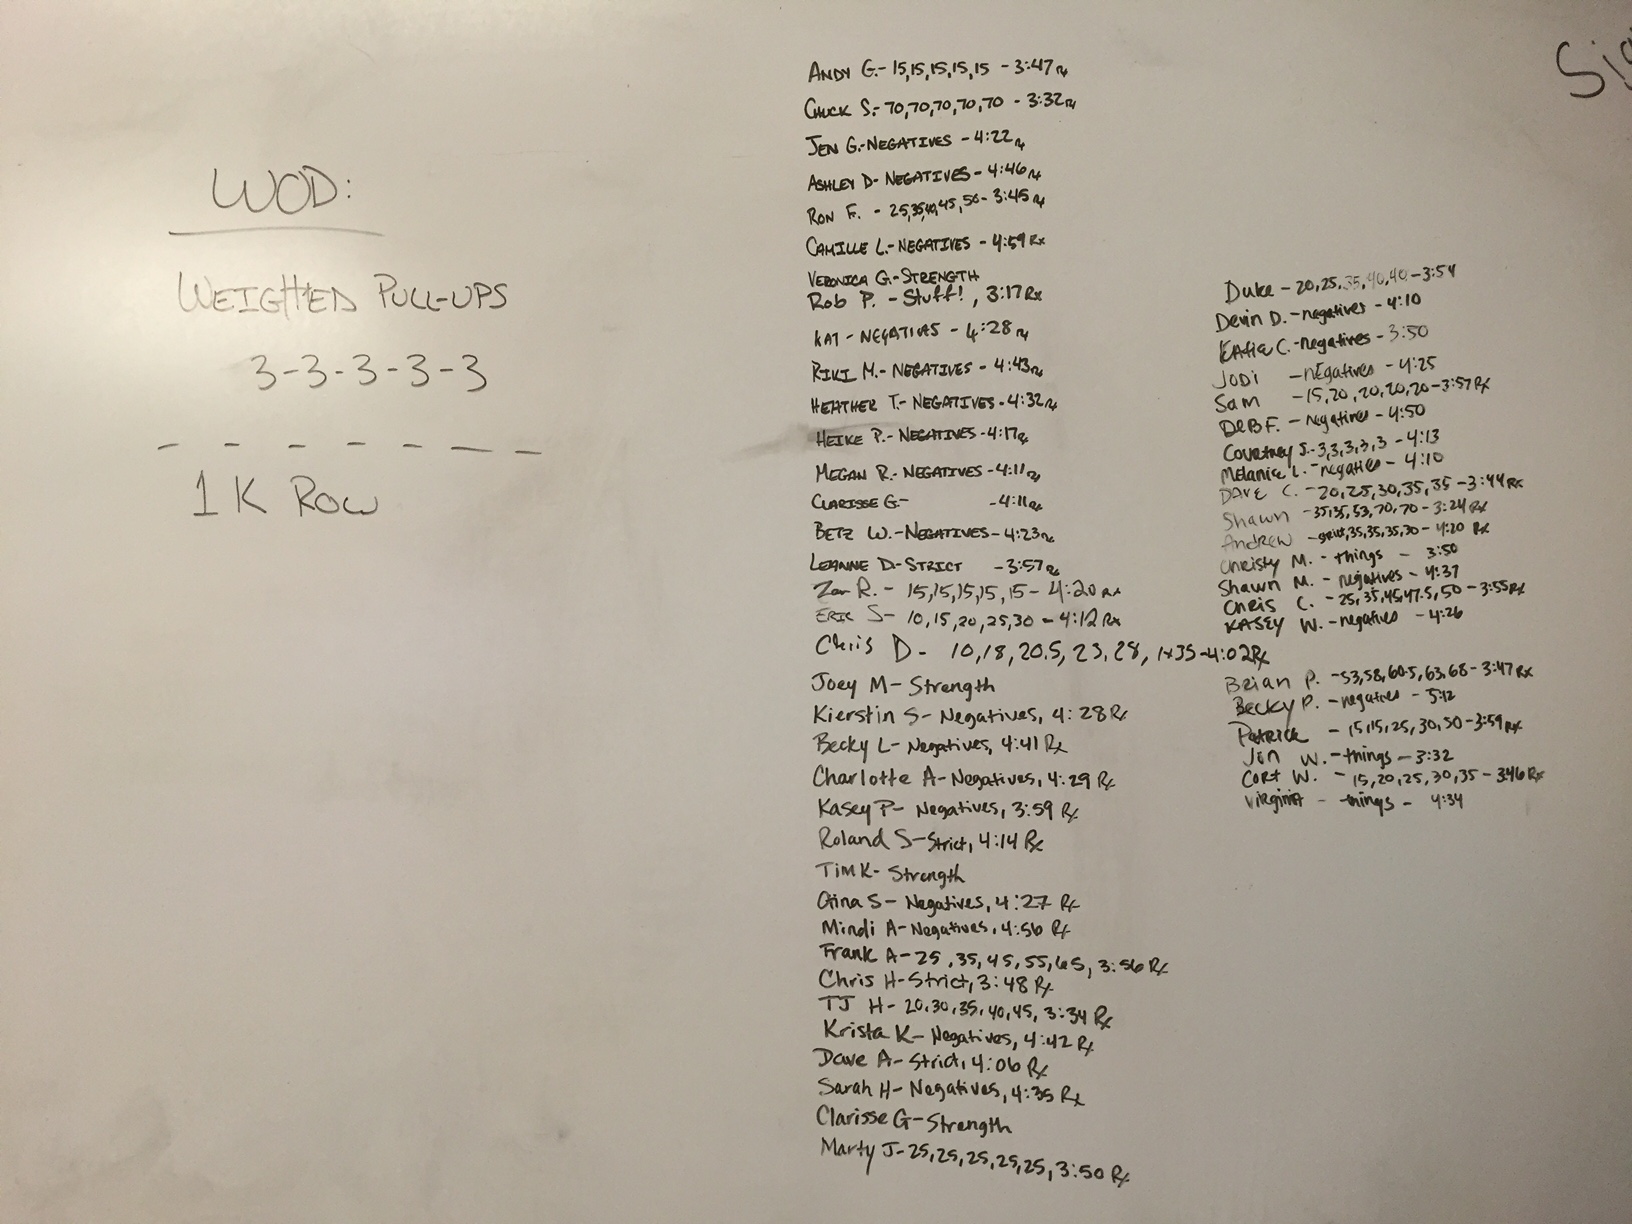 WOD:
WEIGHTED PULL-UPS
3-3-3-3-3
- - - - - - -
1K ROW
ANDY G.- 15,15,15,15,15 - 3:47 Rx
CHUCK S.- 70,70,70,70,70 - 3:32 Rx
JEN G.-NEGATIVES - 4:22 Rx
ASHLEY D- NEGATIVES - 4:46 Rx
RON F. - 25,35,40,45,50- 3:45 Rx
CAMILLE L.-NEGATIVES - 4:59 Rx
VERONICA G.-STRENGTH
Rob P. - Stuff!, 3:17 Rx
KAT - NEGATIVES - 4:28 Rx
RIKI M.- NEGATIVES - 4:43 Rx
HEATHER T.- NEGATIVES - 4:32 Rx
HEIKE P.- NEGATIVES -4:17 Rx
MEGAN R.- NEGATIVES -4:11 Rx
CLARISSE G.- -4:11 Rx
BETZ W.-NEGATIVES- 4:23 Rx
LEANNE D.- STRICT -3:57 Rx
R. - 15,15,15,15,15 - 4:20 Rx
ERIC S- 10,15,20,25,30 - 4:12 Rx
Chris D- 10,18,20.5,23,28, 1x35-4:02 Rx
Joey M- Strength
Kierstin S- Negatives, 4:28 Rx
Becky L- Negatives, 4:41 Rx
Charlotte A- Negatives, 4:29 Rx
Kasey P- Negatives, 3:59 Rx
Roland S-Strict, 4:14 Rx
Tim K- Strength
Gina S- Negatives, 4:27 Rx
Mindi A-Negatives, 4:56 Rx
Frank A-25,35,45,55,65, 3:56 Rx
Chris H-Strict, 3:48 Rx
TJ H- 20,30,35,40,45, 3:34 Rx
Krista K- Negatives, 4:42 Rx
Dave A- Strict, 4:06 Rx
Sarah H- Negatives, 4:35 Rx
Clarisse G-Strength
Marty J-25,25,25,25,25, 3:50 Rx
Duke - 20,25,35,40,40 -3:54
Devin D. -negatives - 4:10
Katie C. -negatives - 3:50
Jodi -negatives - 4:25
Sam -15,20,20,20,20-3:57 Rx
DEB F. - negatives - 4:50
Courtney S.-3,3,3,3,3 - 4:13
Melanie L. - negatives - 4:10
DAVE C. - 20,25,30,35,35 -3:44 Rx
Shawn -35,35,53,70,70 - 3:24 Rx
Andrew - 35,35,35,30 - 4:20 Rx
Christy M. - things - 3:50
Shawn M. - negatives - 4:37
Chris C. - 25,35,45,47.5,50 -3:55 Rx
KASEY W. -negatives - 4:26
Brian P. -53,58,60.5,63,68- 3:47 Rx
Becky P. -negatives - 5:12
Patrick - 15,15,25,30,50-3:59 Rx
Jon W. -things - 3:32
CORT W. - 15,20,25,30,35 - 3:46 Rx
Virginia - things - 4:34